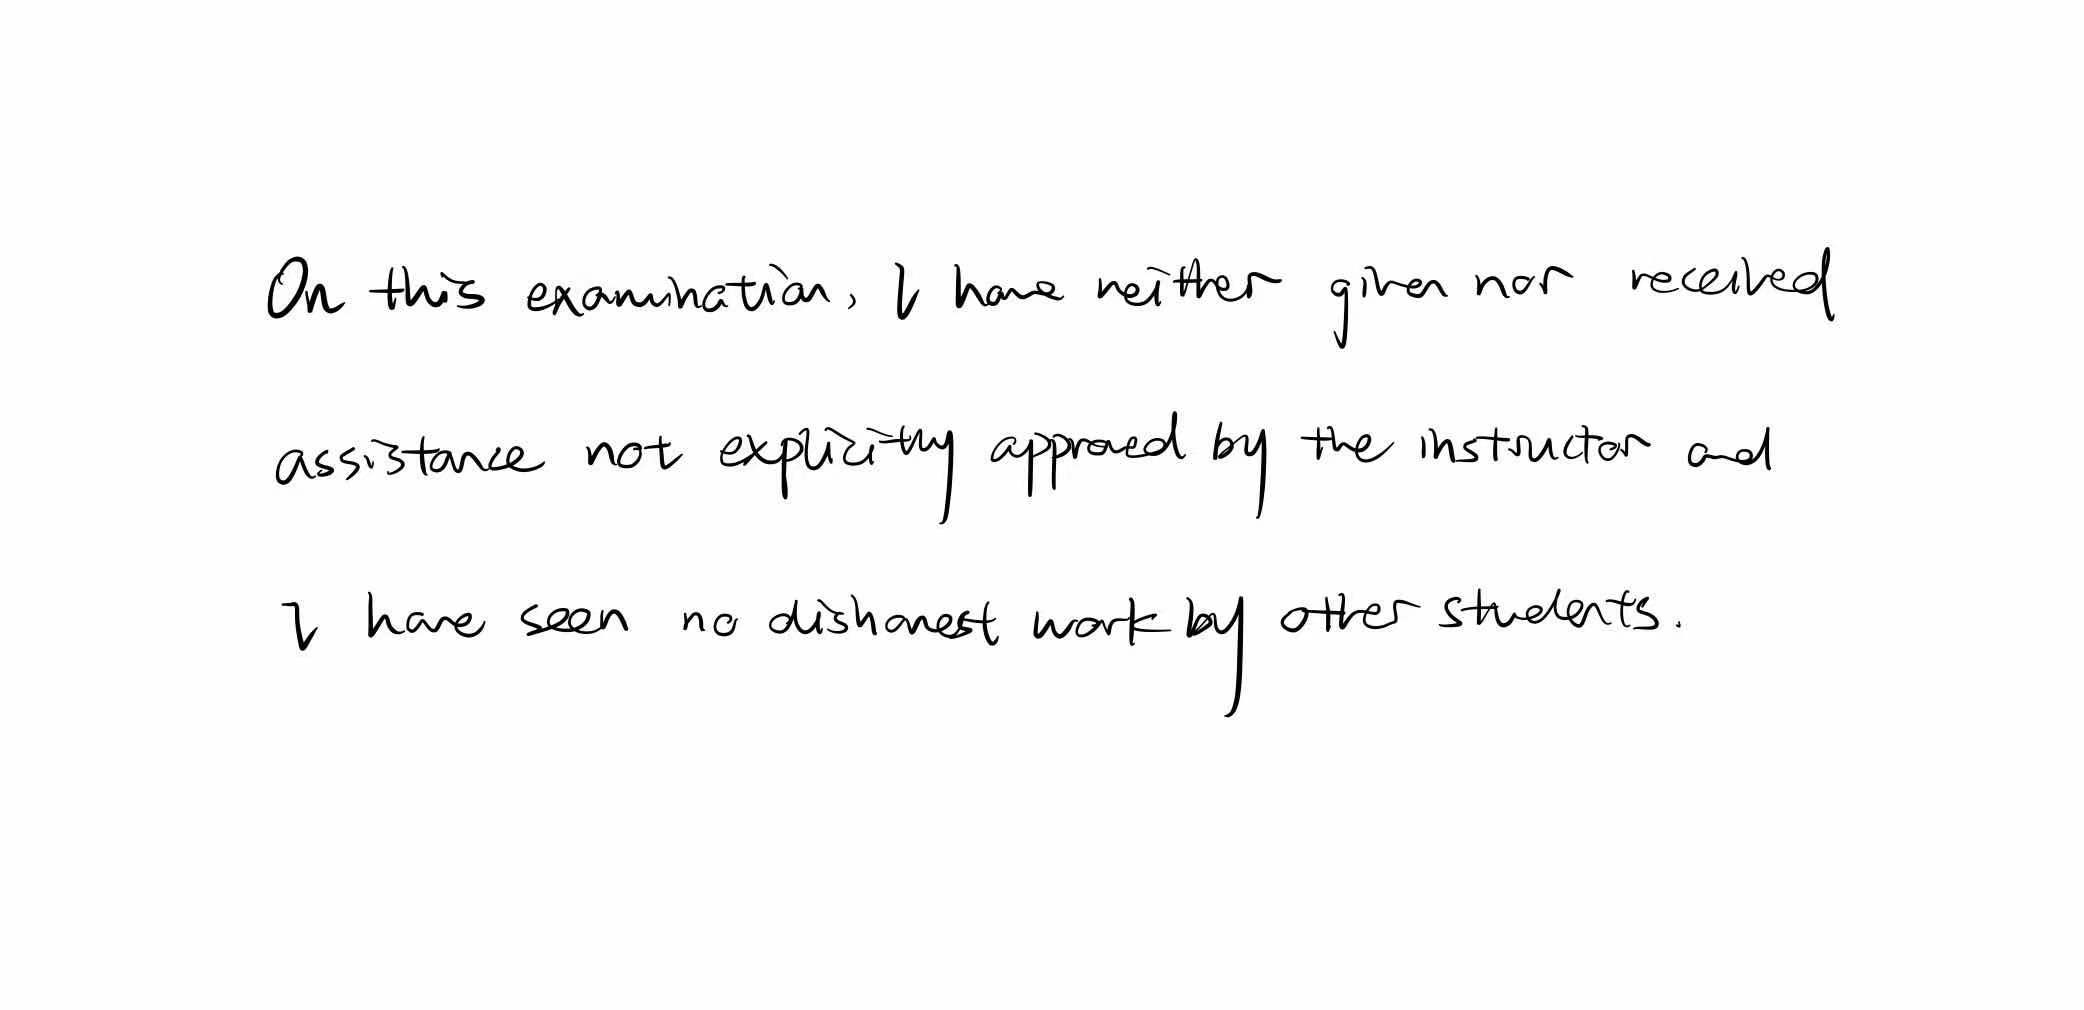 On this examination, I have neither given nor received
assistance not explicitly approved by the instructor and
I have seen no dishonest work by other students.